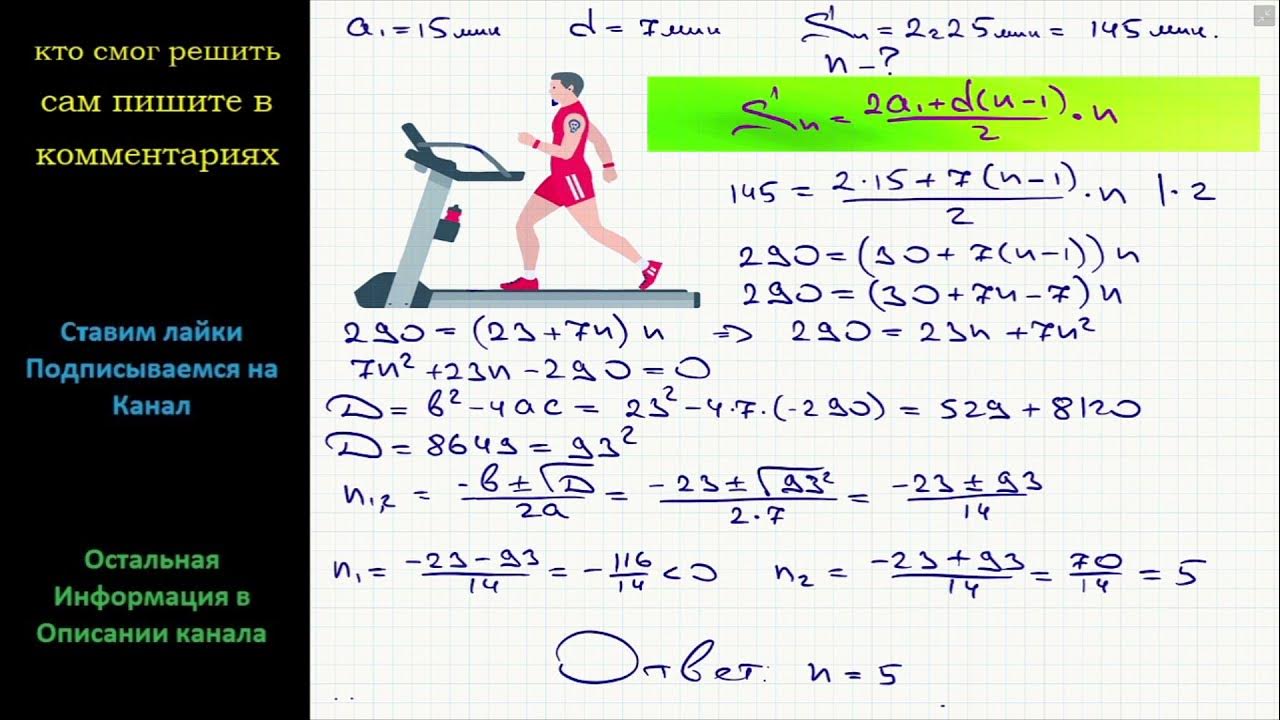 кто смог решить
сам пишите в
комментариях
Ставим лайки
Подписываемся на
Канал
Остальная
Информация в
Описании канала
a₁ = 15 мин d = 7 мин Sₙ = 2ч 25 мин = 145 мин.
n – ?
Sₙ = (2a₁ + d(n – 1))/2 · n
145 = (2 · 15 + 7(n – 1))/2 · n | · 2
290 = (30 + 7(n – 1)) n
290 = (30 + 7n – 7) n
290 = (23 + 7n) n ⇒ 290 = 23n + 7n²
7n² + 23n – 290 = 0
D = b² – 4ac = 23² – 4 · 7 · (–290) = 529 + 8120
D = 8649 = 93²
n₁,₂ = (–b ± √D)/2a = (–23 ± √93²)/(2 · 7) = (–23 ± 93)/14
n₁ = (–23 – 93)/14 = –116/14 < 0 n₂ = (–23 + 93)/14 = 70/14 = 5
Ответ: n = 5